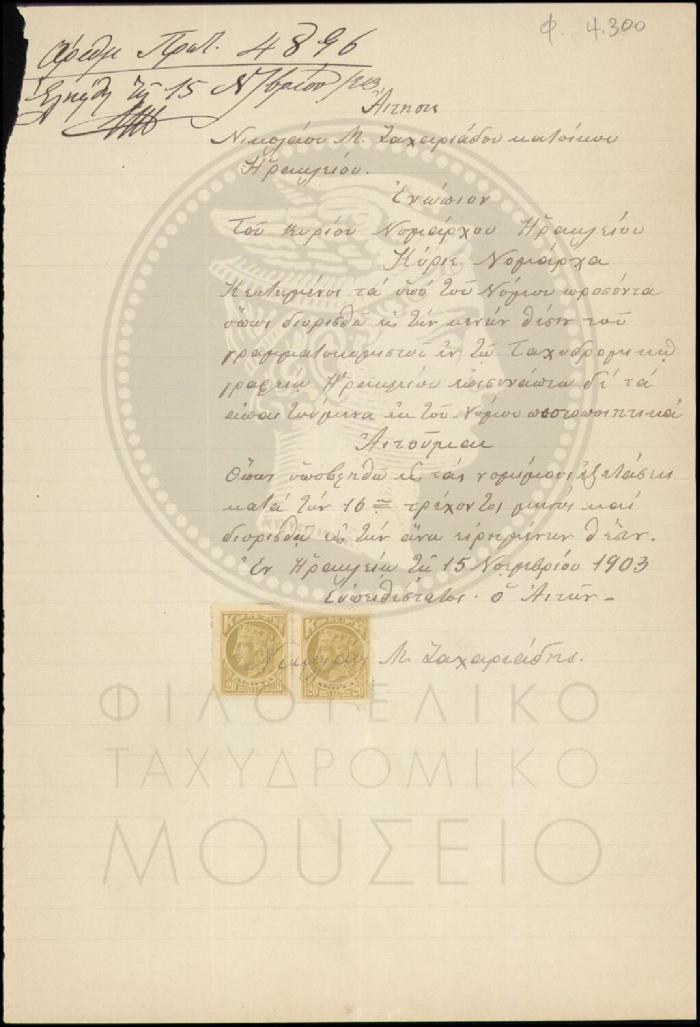 Φ. 4.300
Αριθμ Πρωτ. 4896
Ἐλήφθη τῇ 15 Ν/βρίου 1903
Αἴτησις
Νικολάου Μ. Ζαχαριάδου κατοίκου
Ἡρακλείου.
Ἐνώπιον
Τοῦ κυρίου Νομάρχου Ἡρακλείου
Κύριε Νομάρχα
Κεκτημένος τά ὑπό τοῦ Νόμου προσόντα
ὅπως διορισθῶ εἰς τήν κενήν θέσιν τοῦ
γραμματοκομιστοῦ ἐν τῷ Ταχυδρομικῷ
γραφείῳ Ἡρακλείου ἐπισυνάπτω δέ τά
ἀπαιτούμενα ἐκ τοῦ Νόμου πιστοποιητικά
Αἰτοῦμαι
Ὅπως ὑποβληθῶ εἰς τάς νομίμους ἐξετάσεις
κατά τήν 16 τρέχοντος μηνός καί
διορισθῶ εἰς τήν ἄνω εἰρημένην θέσιν.
Ἐν Ἡρακλείῳ τῇ 15 Νοεμβρίου 1903
Εὐπειθέστατος ὁ Αἰτῶν
Νικόλαος Μ. Ζαχαριάδης.
ΚΡΗΤΗΣ ΚΡΗΤΗΣ
20 20 20 20
ΦΙΛΟΤΕΛΙΚΟ
ΤΑΧΥΔΡΟΜΙΚΟ
ΜΟΥΣΕΙΟ